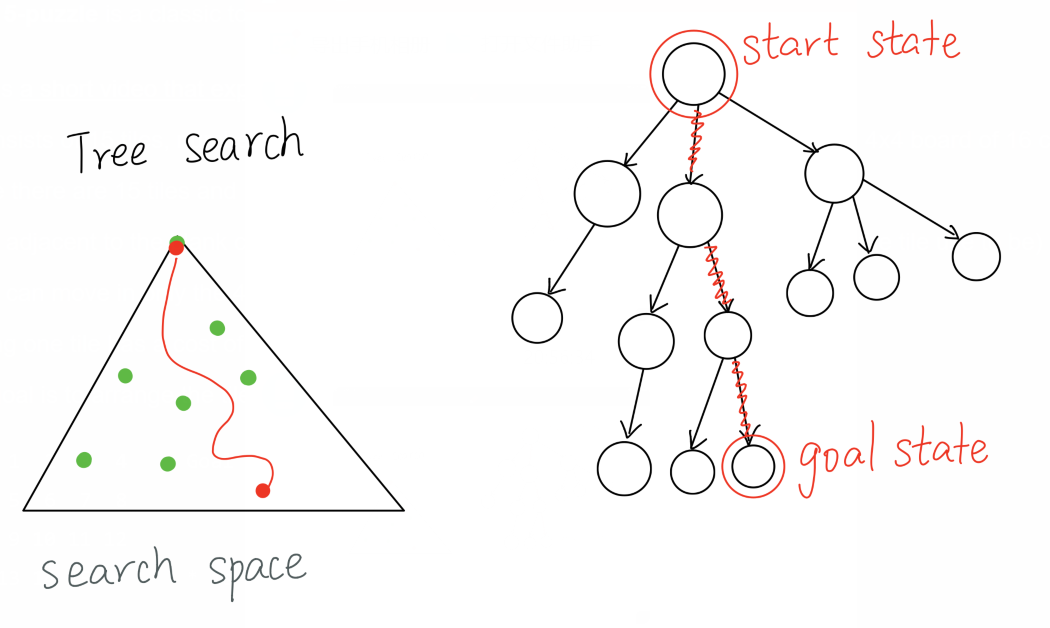 Tree search
search space
start state
goal state